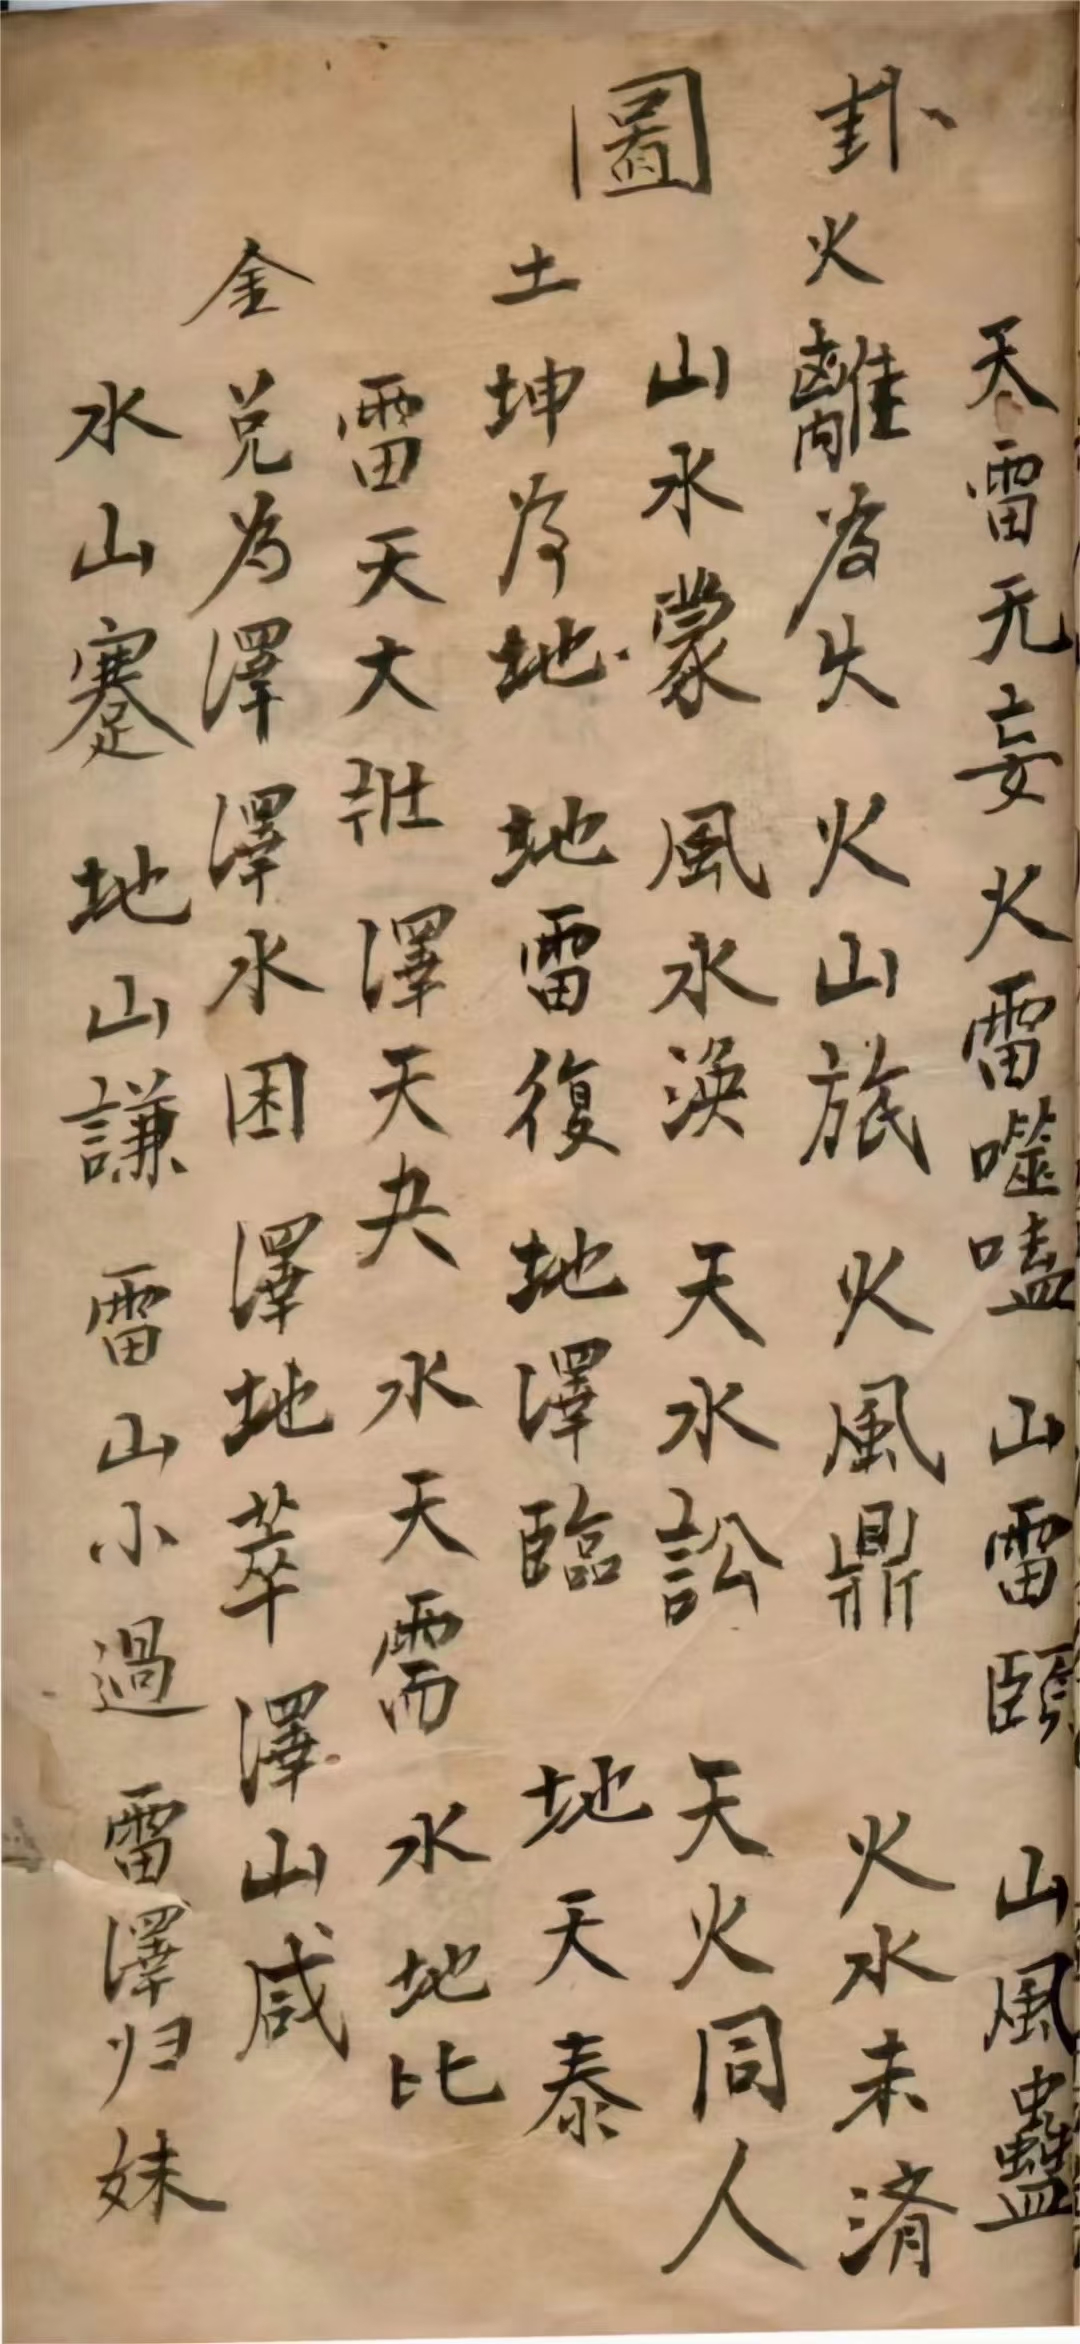 天雷无妄 火雷噬嗑 山雷頤 山風蠱
卦 火 離為火 火山旅 火風鼎 火水未濟
山水蒙 風水渙 天水訟 天火同人
圖 土 坤为地 地雷復 地澤臨 地天泰
雷天大壯 澤天夬 水天需 水地比
金 兑為澤 澤水困 澤地萃 澤山咸
水山蹇 地山謙 雷山小過 雷澤归妹